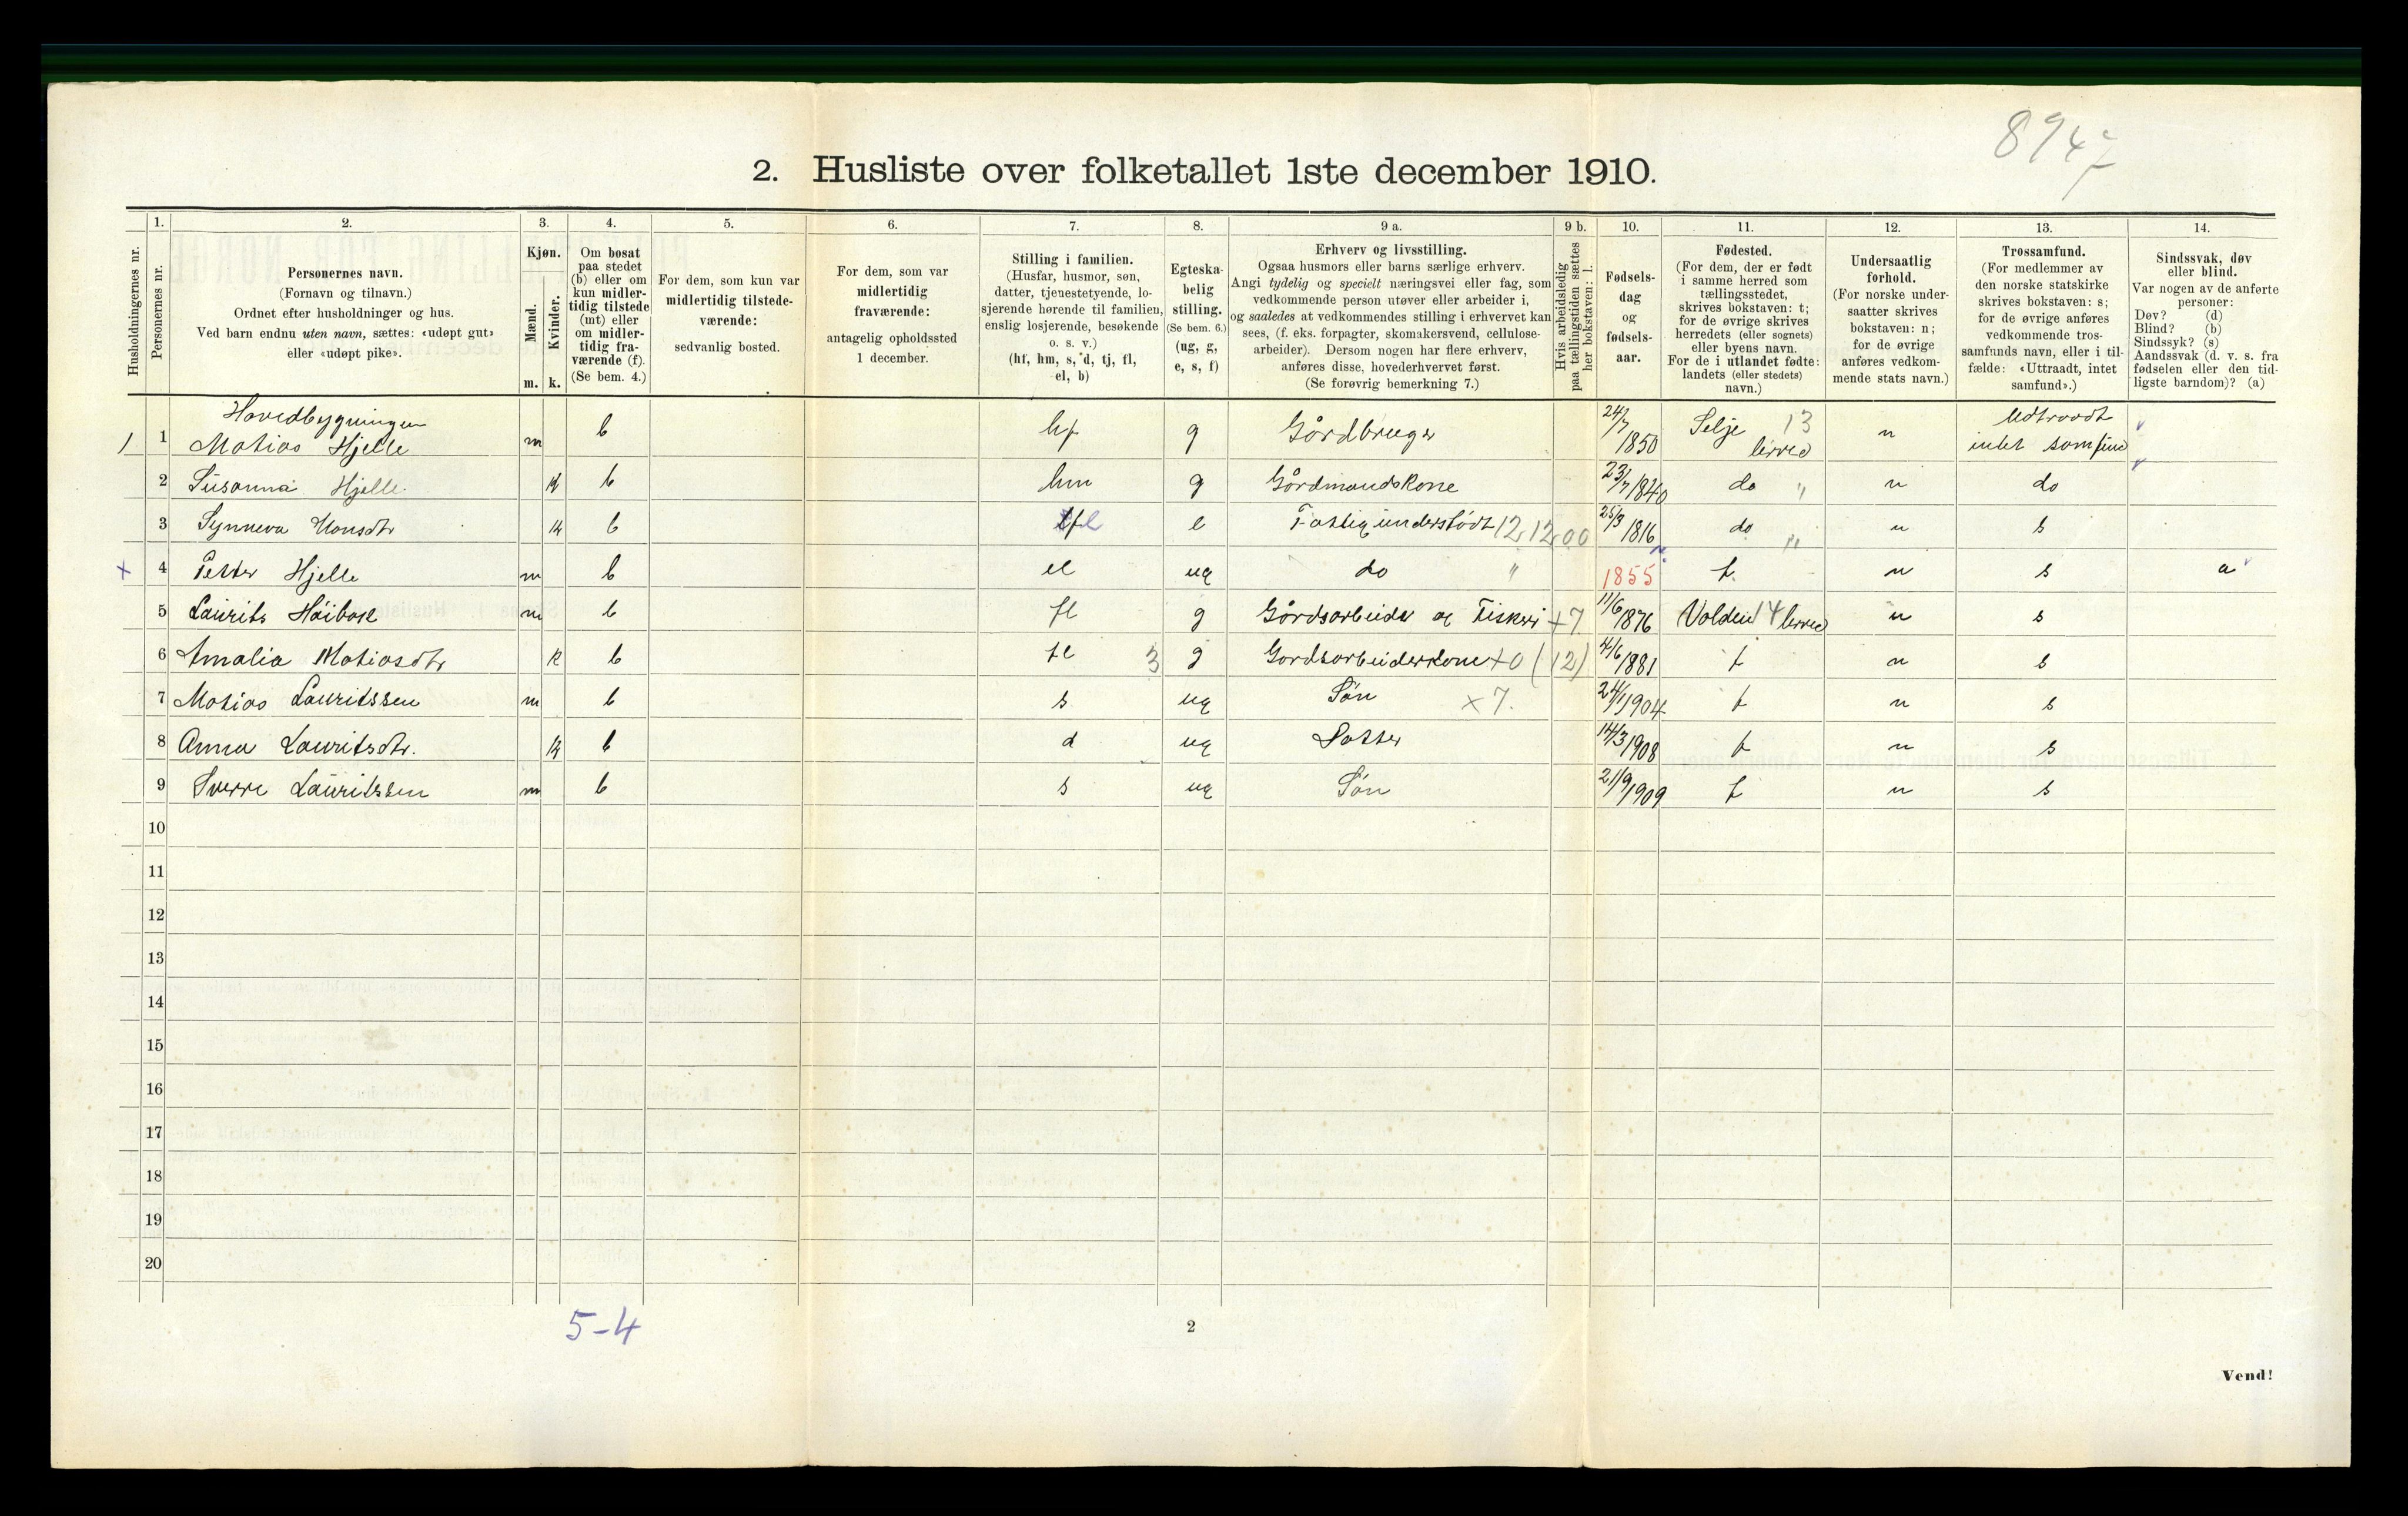 8947
2. Husliste over folketallet 1ste december 1910.
Husholdningernes nr.
1. Personernes nr.
2.
Personernes navn.
(Fornavn og tilnavn.)
Ordnet efter husholdninger og hus.
Ved barn endnu uten navn, sættes: «udøpt gut»
eller «udøpt pike».
3.
Kjøn.
Mænd. Kvinder.
m. k.
4.
Om bosat
paa stedet
(b) eller om
kun midler-
tidig tilstede
(mt) eller
om midler-
tidig fra-
værende (f).
(Se bem. 4.)
5.
For dem, som kun var
midlertidig tilstede-
værende:
sedvanlig bosted.
6.
For dem, som var
midlertidig
fraværende:
antagelig opholdssted
1 december.
7.
Stilling i familien.
(Husfar, husmor, søn,
datter, tjenestetyende, lo-
sjerende hørende til familien,
enslig losjerende, besøkende
o. s. v.)
(hf, hm, s, d, tj, fl,
el, b)
8.
Egteska-
belig
stilling.
(Se bem. 6.)
(ug, g,
e, s, f)
9 a.
Erhverv og livsstilling.
Ogsaa husmors eller barns særlige erhverv.
Angi tydelig og specielt næringsvei eller fag, som
vedkommende person utøver eller arbeider i,
og saaledes at vedkommendes stilling i erhvervet kan
sees, (f. eks. forpagter, skomakersvend, cellulose-
arbeider). Dersom nogen har flere erhverv,
anføres disse, hovederhvervet først.
(Se forøvrig bemerkning 7.)
9 b.
Hvis arbeidsledig
paa tællingstiden sættes
her bokstaven: l.
10.
Fødsels-
dag
og
fødsels-
aar.
11.
Fødested.
(For dem, der er født
i samme herred som
tællingsstedet,
skrives bokstaven: t;
for de øvrige skrives
herredets (eller sognets)
eller byens navn.
For de i utlandet fødte:
landets (eller stedets)
navn.)
12.
Undersaatlig
forhold.
(For norske under-
saatter skrives
bokstaven: n;
for de øvrige
anføres vedkom-
mende stats navn.)
13.
Trossamfund.
(For medlemmer av
den norske statskirke
skrives bokstaven: s;
for de øvrige anføres
vedkommende tros-
samfunds navn, eller i til-
fælde: «Uttraadt, intet
samfund».)
14.
Sindssvak, døv
eller blind.
Var nogen av de anførte
personer:
Døv? (d)
Blind? (b)
Sindssyk? (s)
Aandssvak (d. v. s. fra
fødselen eller den tid-
ligste barndom)? (a)
Hovedbygningen
1 1 Matias Hjelle m b hf g Gårdbruger 24/7 1850 Selje 13 herred n Udtraadt intet samfund
2 Susanna Hjelle k b hm g Gårdmandskone 23/7 1840 do " n do
3 Synneva Hansdtr k b fl e Fattigunderstödt 12,12,00 25/3 1816 do " n s
x 4 Petter Hjelle m b el ug do " 1855 t n s a
5 Laurits Höibak m b fl g Gårdsarbeider og Fisker +7 11/6 1876 Volden 14 herred n s
6 Amalia Matiasdtr k b fl 3 g Gardsarbeiderkone +0 (12) 4/6 1881 t n s
7 Matias Lauritssen m b s ug Sön x7. 24/1 1904 t n s
8 Anna Lauritsdtr. k b d ug Datter 14/3 1908 t n s
9 Sverre Lauritssen m b s ug Sön 21/9 1909 t n s
10
11
12
13
14
15
16
17
18
19
20
5-4
2
Vend!